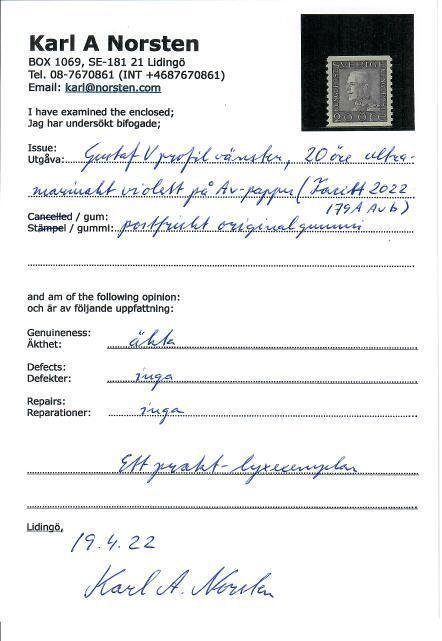 Karl A Norsten
BOX 1069, SE-181 21 Lidingö
Tel. 08-7670861 (INT +4687670861)
Email: karl@norsten.com
SVERIGE
20 ÖRE
I have examined the enclosed;
Jag har undersökt bifogade;
Issue:
Utgåva: Gustaf V profil vänster, 20 öre ultra-
marinaktt violett på Av-papper (Facit 2022
179A Avb)
Cancelled / gum:
Stämpel / gummi: postfriskt originalgummi
and am of the following opinion:
och är av följande uppfattning:
Genuineness:
Äkthet: äkta
Defects:
Defekter: inga
Repairs:
Reparationer: inga
Ett prakt-lyxexemplar
Lidingö,
19.4.22
Karl A. Norsten